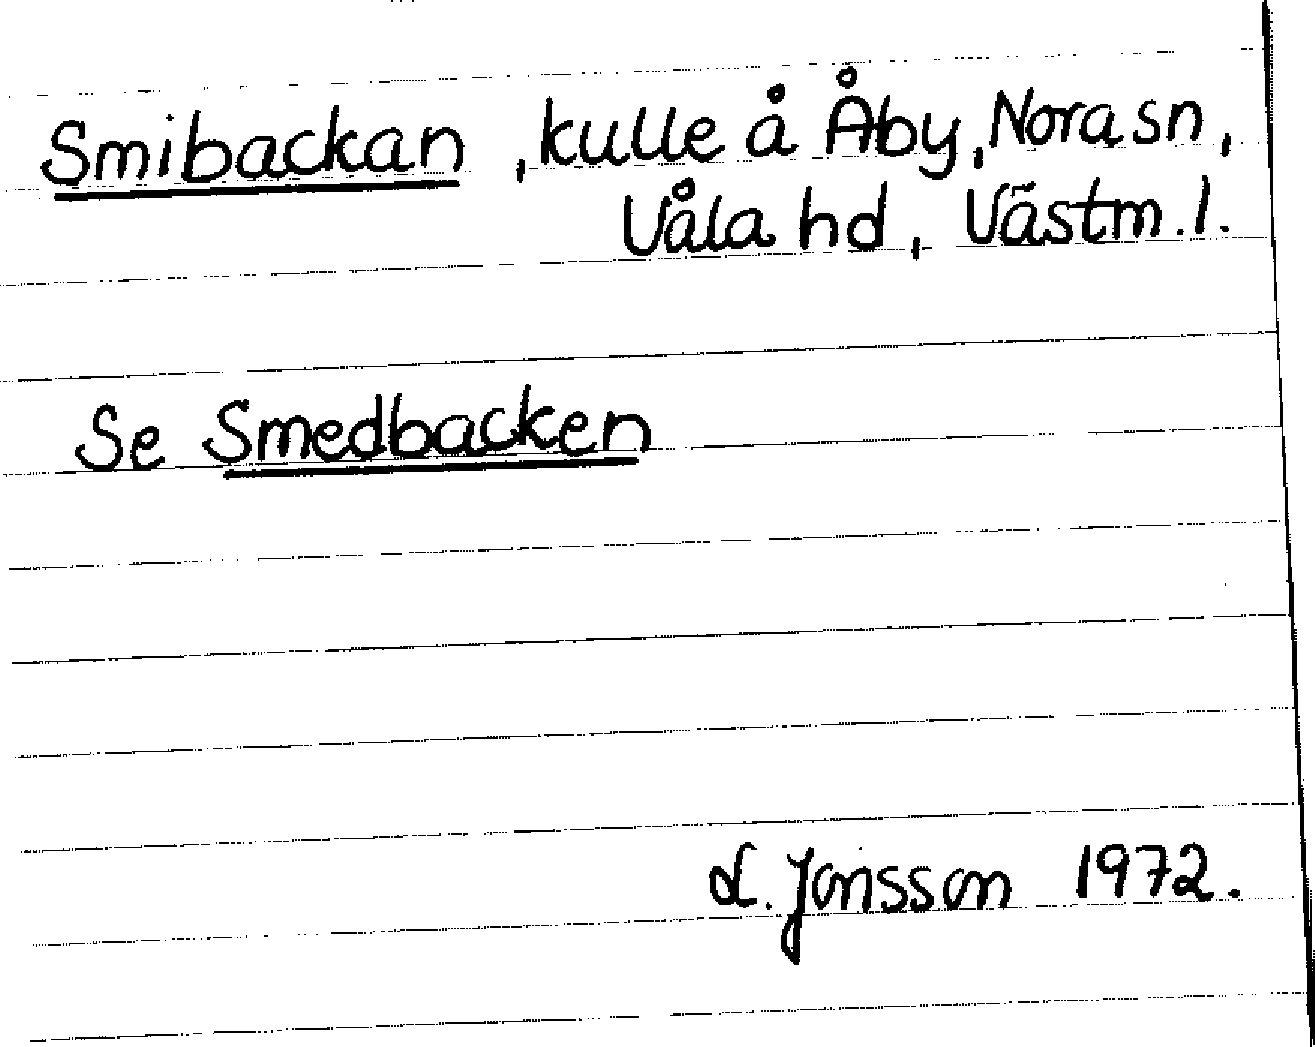 Smibackan, kulle å Åby, Nora sn,
Våla hd, Västm. l.
Se Smedbacken
L. Jonsson 1972.